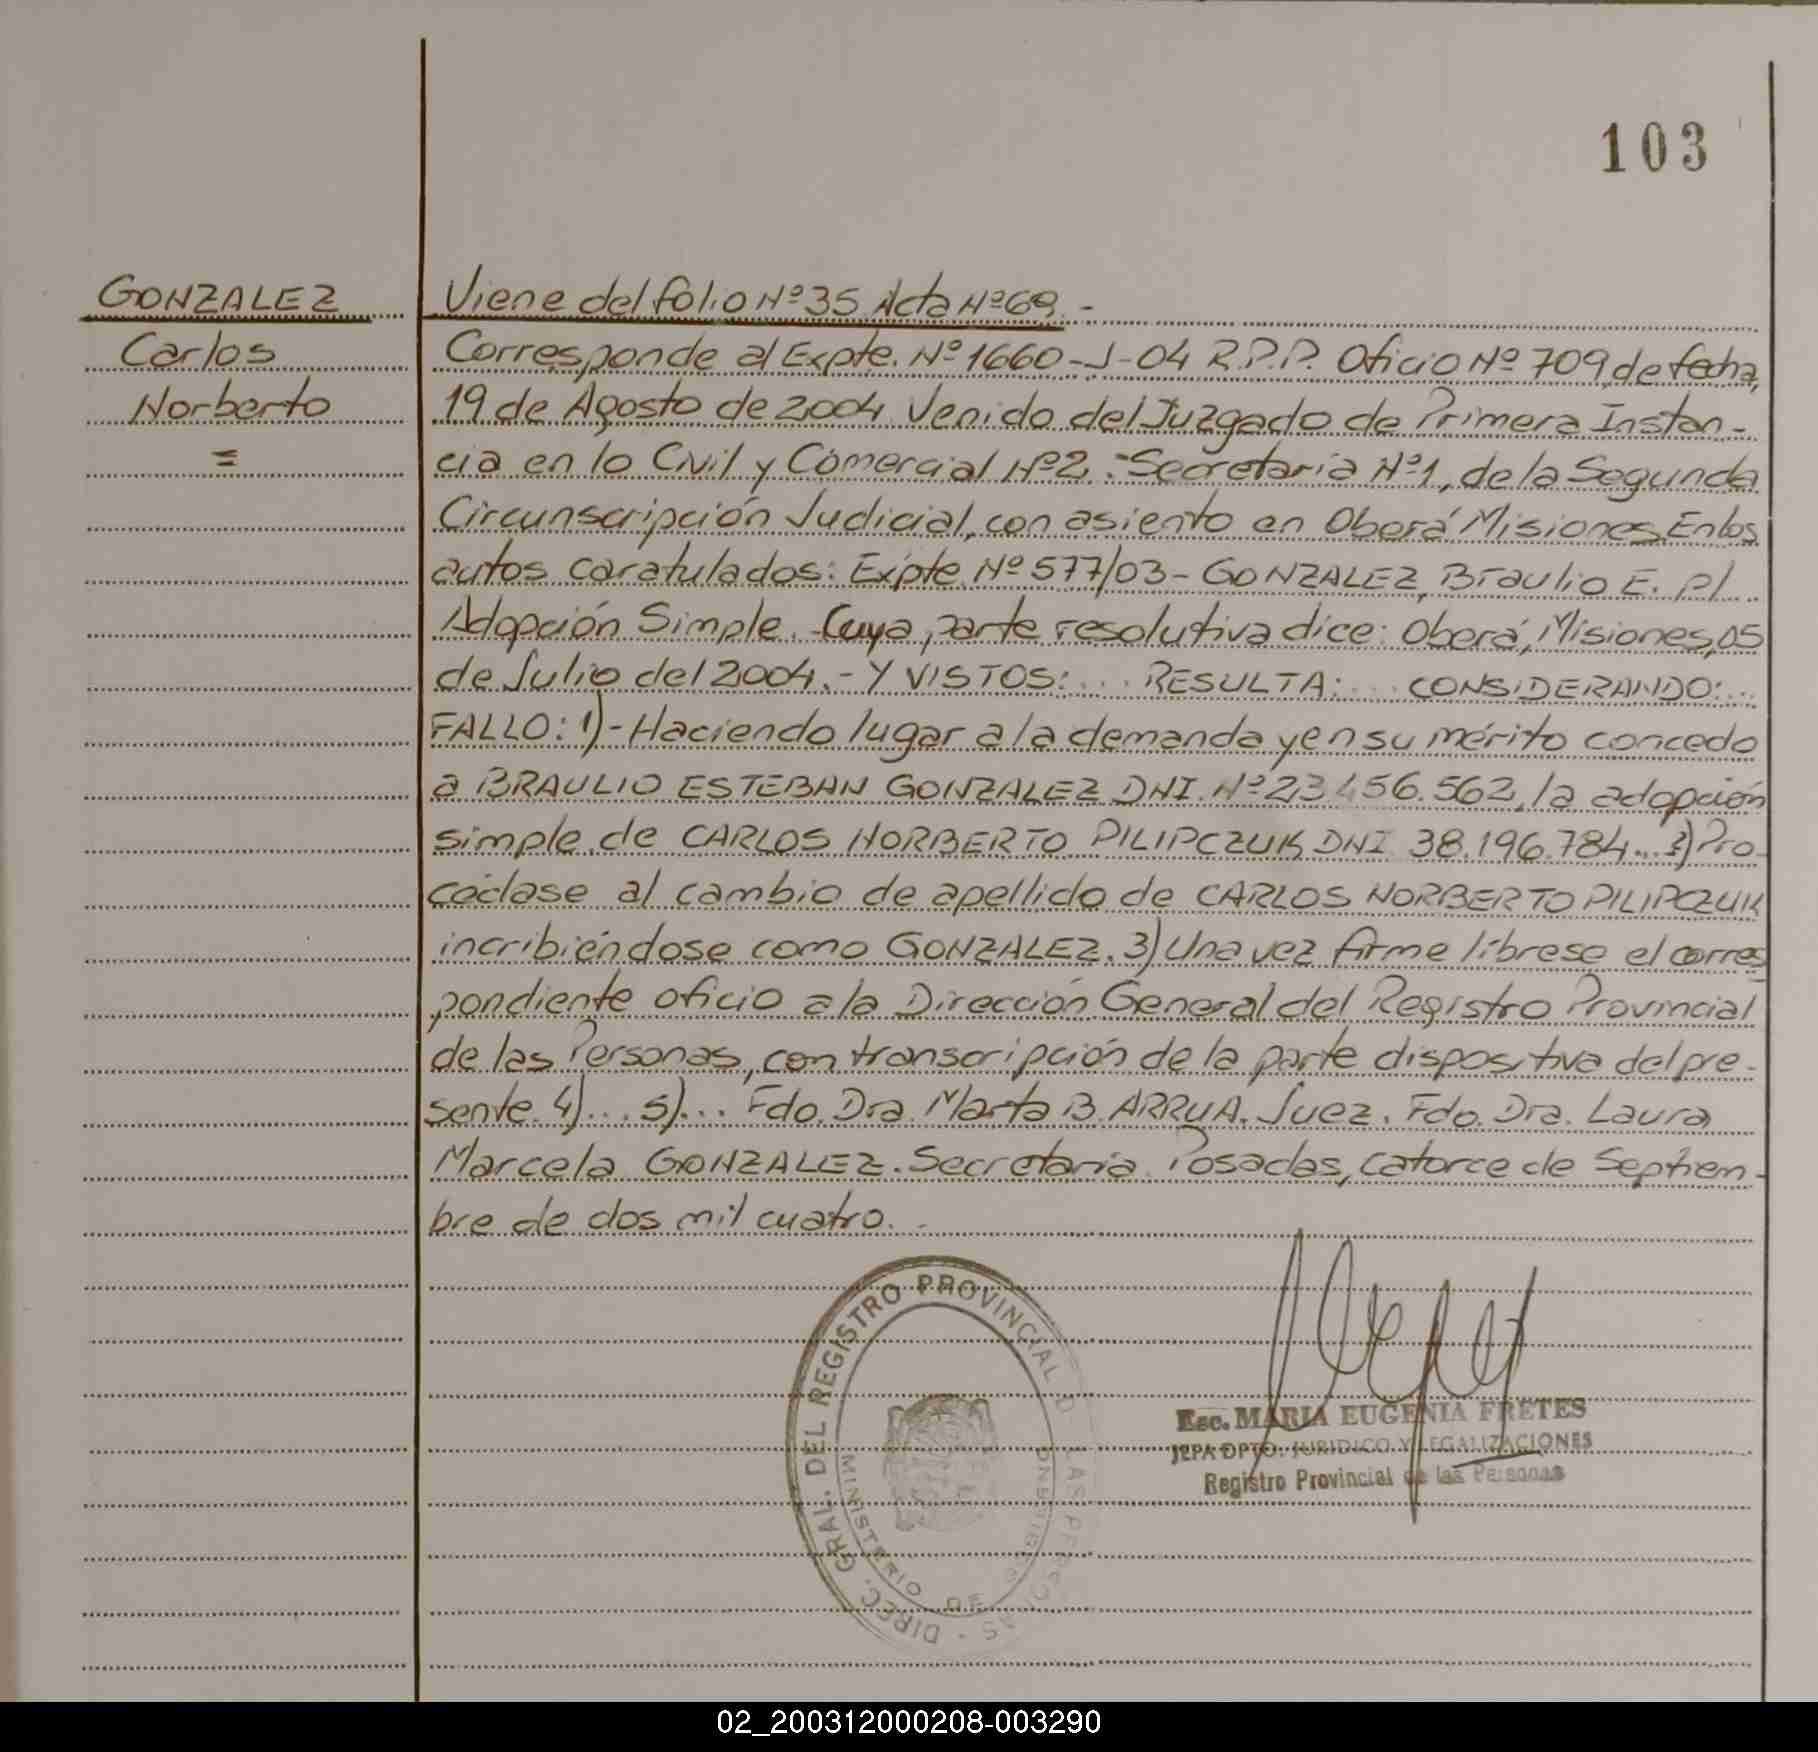 103
GONZALEZ
Carlos
Norberto
=
Viene del folio Nº 35 Acta Nº 69.-
Corresponde al Expte. Nº 1660-J-04 R.P.P. Oficio Nº 709, de fecha,
19 de Agosto de 2004. Venido del Juzgado de Primera Instan-
cia en lo Civil y Comercial Nº 2.- Secretaría Nº 1, de la Segunda
Circunscripción Judicial, con asiento en Oberá Misiones. En los
autos caratulados: Expte. Nº 577/03- GONZALEZ, Braulio E. p/..
Adopción Simple. Cuya parte resolutiva dice: Oberá, Misiones, 05
de Julio del 2004.- Y VISTOS:... RESULTA:... CONSIDERANDO:...
FALLO: 1)- Haciendo lugar a la demanda y en su mérito concedo
a BRAULIO ESTEBAN GONZALEZ DNI. Nº 23.456.562, la adopción
simple de CARLOS NORBERTO PILIPCZUK DNI 38.196.784... 2) Pro-
cédase al cambio de apellido de CARLOS NORBERTO PILIPCZUK
incribiéndose como GONZALEZ. 3) Una vez firme líbrese el corres
pondiente oficio a la Dirección General del Registro Provincial
de las Personas, con transcripción de la parte dispositiva del pre-
sente. 4)... 5)... Fdo. Dra. Marta B. ARRUA. Juez. Fdo. Dra. Laura
Marcela GONZALEZ. Secretaria. Posadas, catorce de Septiem-
bre de dos mil cuatro.-
DIREC. GRAL. DEL REGISTRO PROVINCIAL D LAS PERSONAS -
MINISTERIO DE
Esc. MARIA EUGENIA FRETES
JEFA DPTO. JURIDICO Y LEGALIZACIONES
Registro Provincial de las Personas
02_200312000208-003290